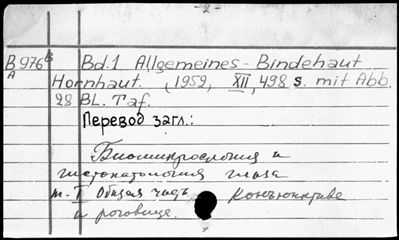 -2-
B976 B Bd.1 Allgemeines - Bindehaut
A Hornhaut. , 1959, XII, 498 s. mit Abb.
28 BL. Taf.
Перевод загл.:
Биомикроскопия и
гистопатология глаза
т. I Общая часть Конъюнктиве
и роговице.